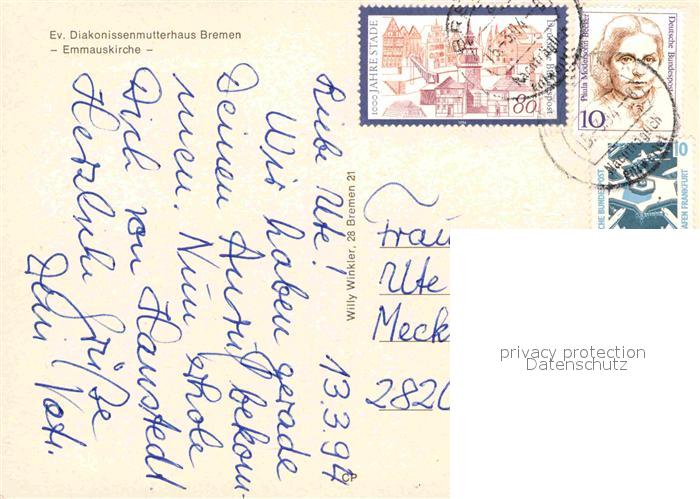 Ev. Diakonissenmutterhaus Bremen
– Emmauskirche –
13.3.94
Liebe Ute!
Wir haben gerade
Deinen Anruf bekom-
men. Nun erhole
Dich von Hanstedt.
Herzliche Grüße
Dein Vater.
Willy Winkler, 28 Bremen 21
CP
1000 JAHRE STADE
Deutsche Bundespost
80
Paula Modersohn-Becker
Deutsche Bundespost
10
10
CHE BUNDESPOST
AFEN FRANKFURT
Nachträglich
entwertet
Frau
Ute
Meck
2820
privacy protection
Datenschutz